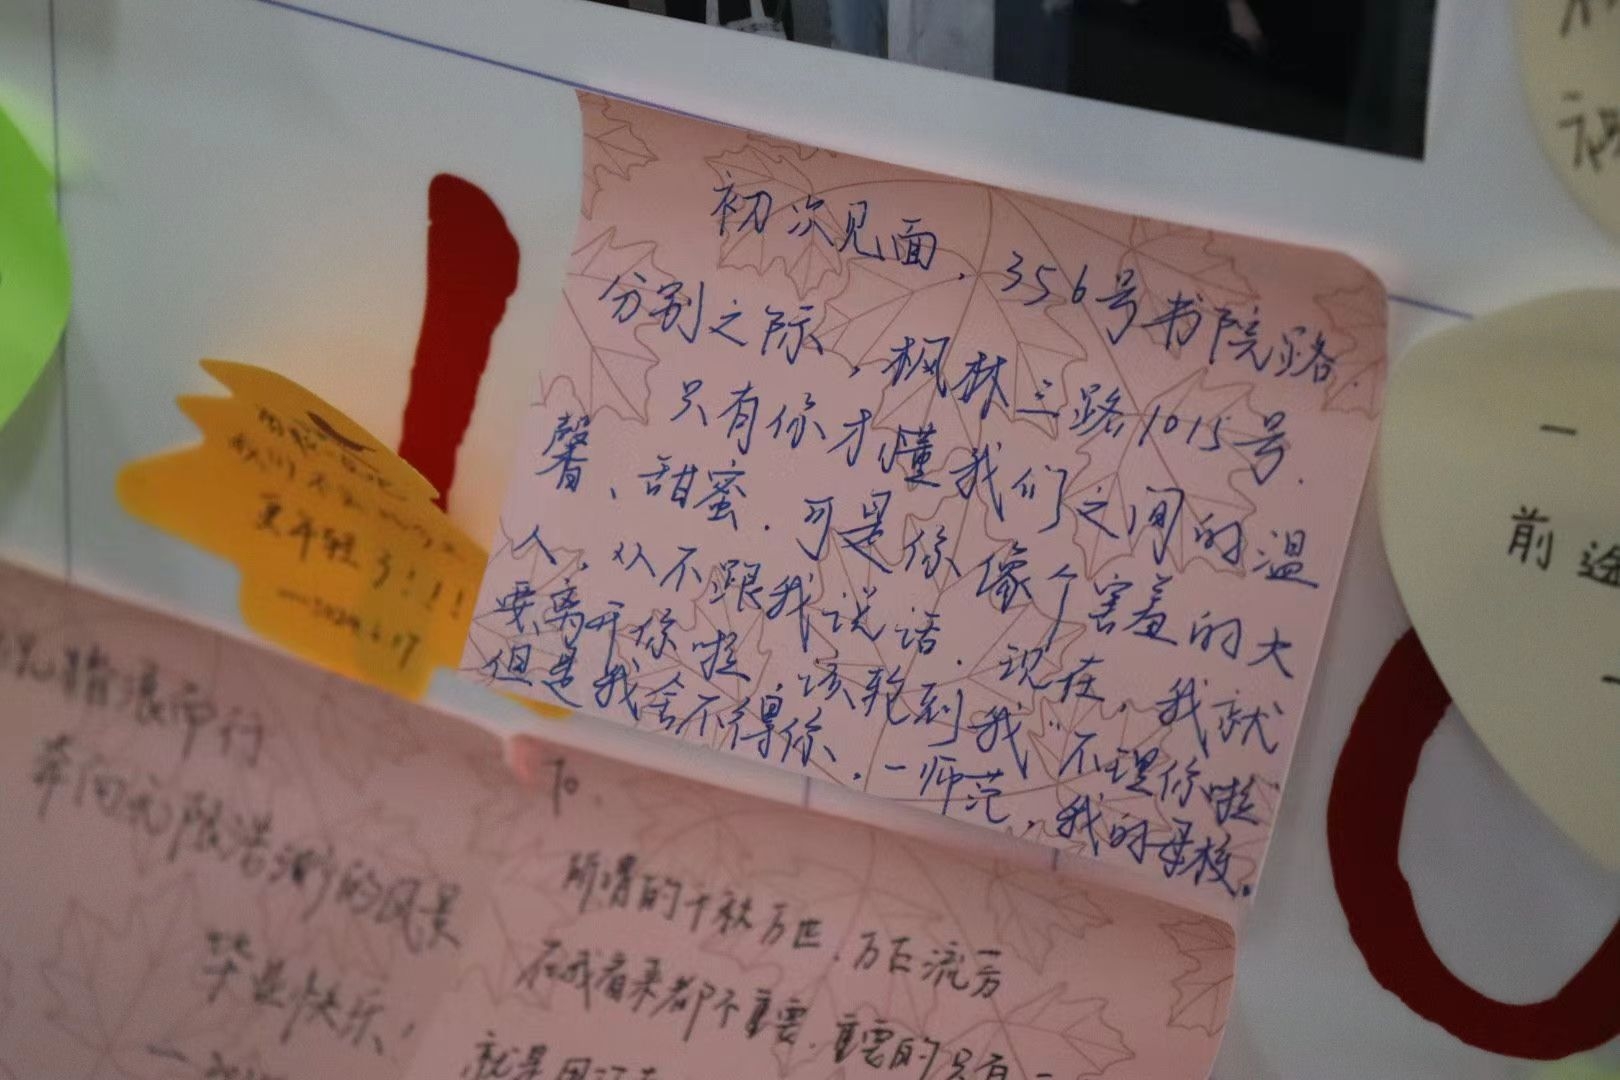 初次见面，356号书院路.
分别之际，枫林三路1015号.
只有你才懂我们之间的温
馨、甜蜜.可是你像个害羞的大
人，从不跟我说话.现在，我就
要离开你啦，该轮到我“不理你啦”
但是我舍不得你，一师范，我的母校。
更年轻了！！！
——2024.6.17
踏浪而行
奔向无限浩瀚的风景
毕业快乐，
To.
所谓的千秋万世，万古流芳
在我看来都不重要.重要的只有一
就是
前途
一
祝